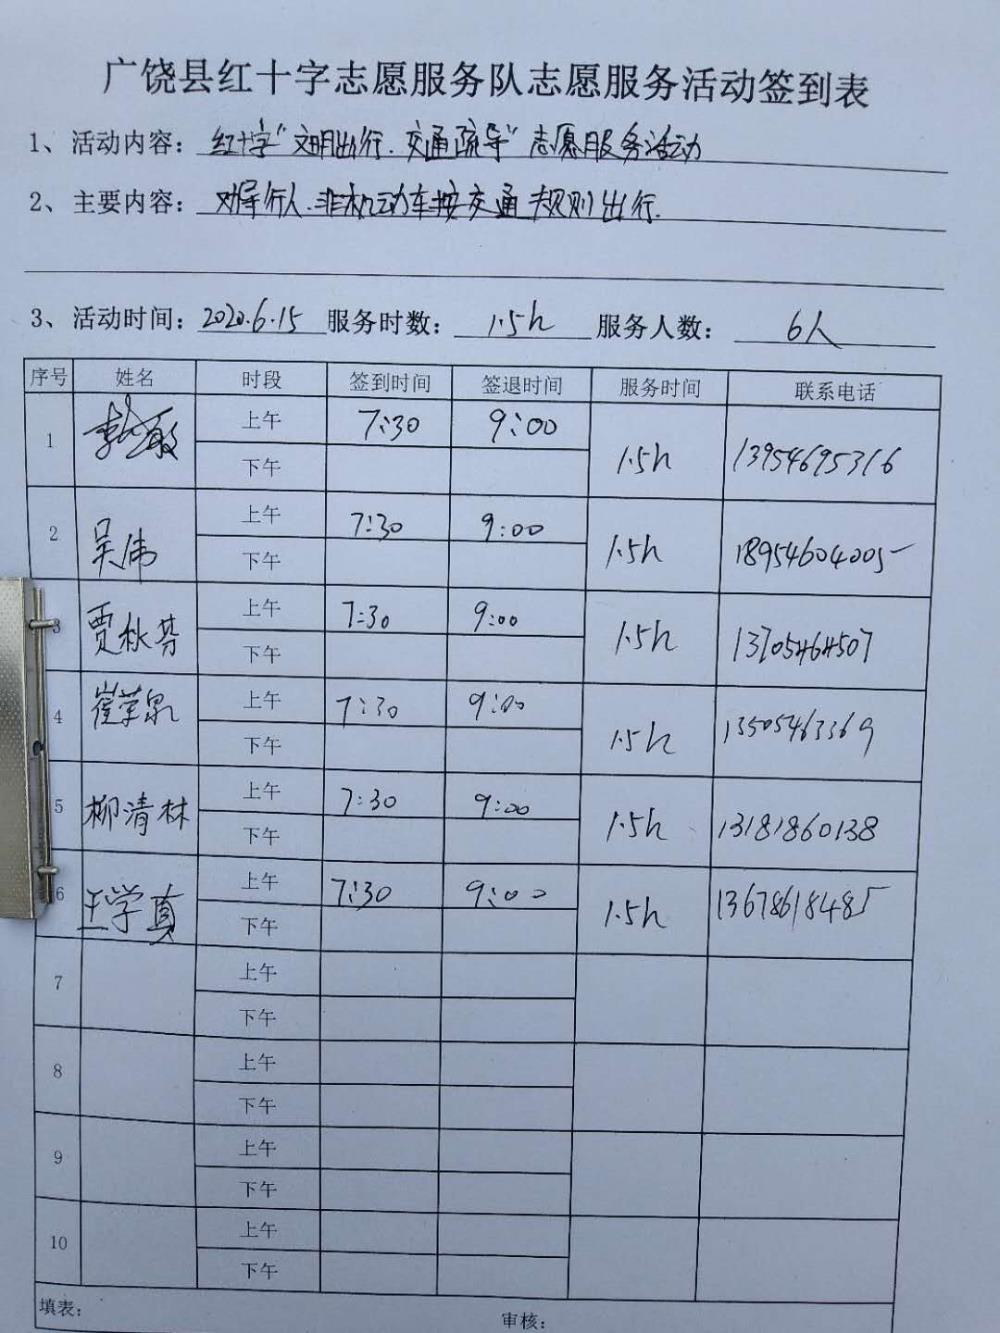 广饶县红十字志愿服务队志愿服务活动签到表
1、活动内容：红十字“文明出行.交通疏导”志愿服务活动
2、主要内容：对导行人.非机动车按交通规则出行.
3、活动时间：2020.6.15 服务时数：1.5h 服务人数：6人
序号 姓名 时段 签到时间 签退时间 服务时间 联系电话
1 李敏 上午 7:30 9:00 1.5h 13954695316
下午
2 吴伟 上午 7:30 9:00 1.5h 18954604005
下午
3 贾秋芬 上午 7:30 9:00 1.5h 13705464507
下午
4 崔学泉 上午 7:30 9:00 1.5h 13505463369
下午
5 柳清林 上午 7:30 9:00 1.5h 13181860138
下午
6 王学真 上午 7:30 9:00 1.5h 13678618485
下午
7 上午
下午
8 上午
下午
9 上午
下午
10 上午
下午
填表： 审核：